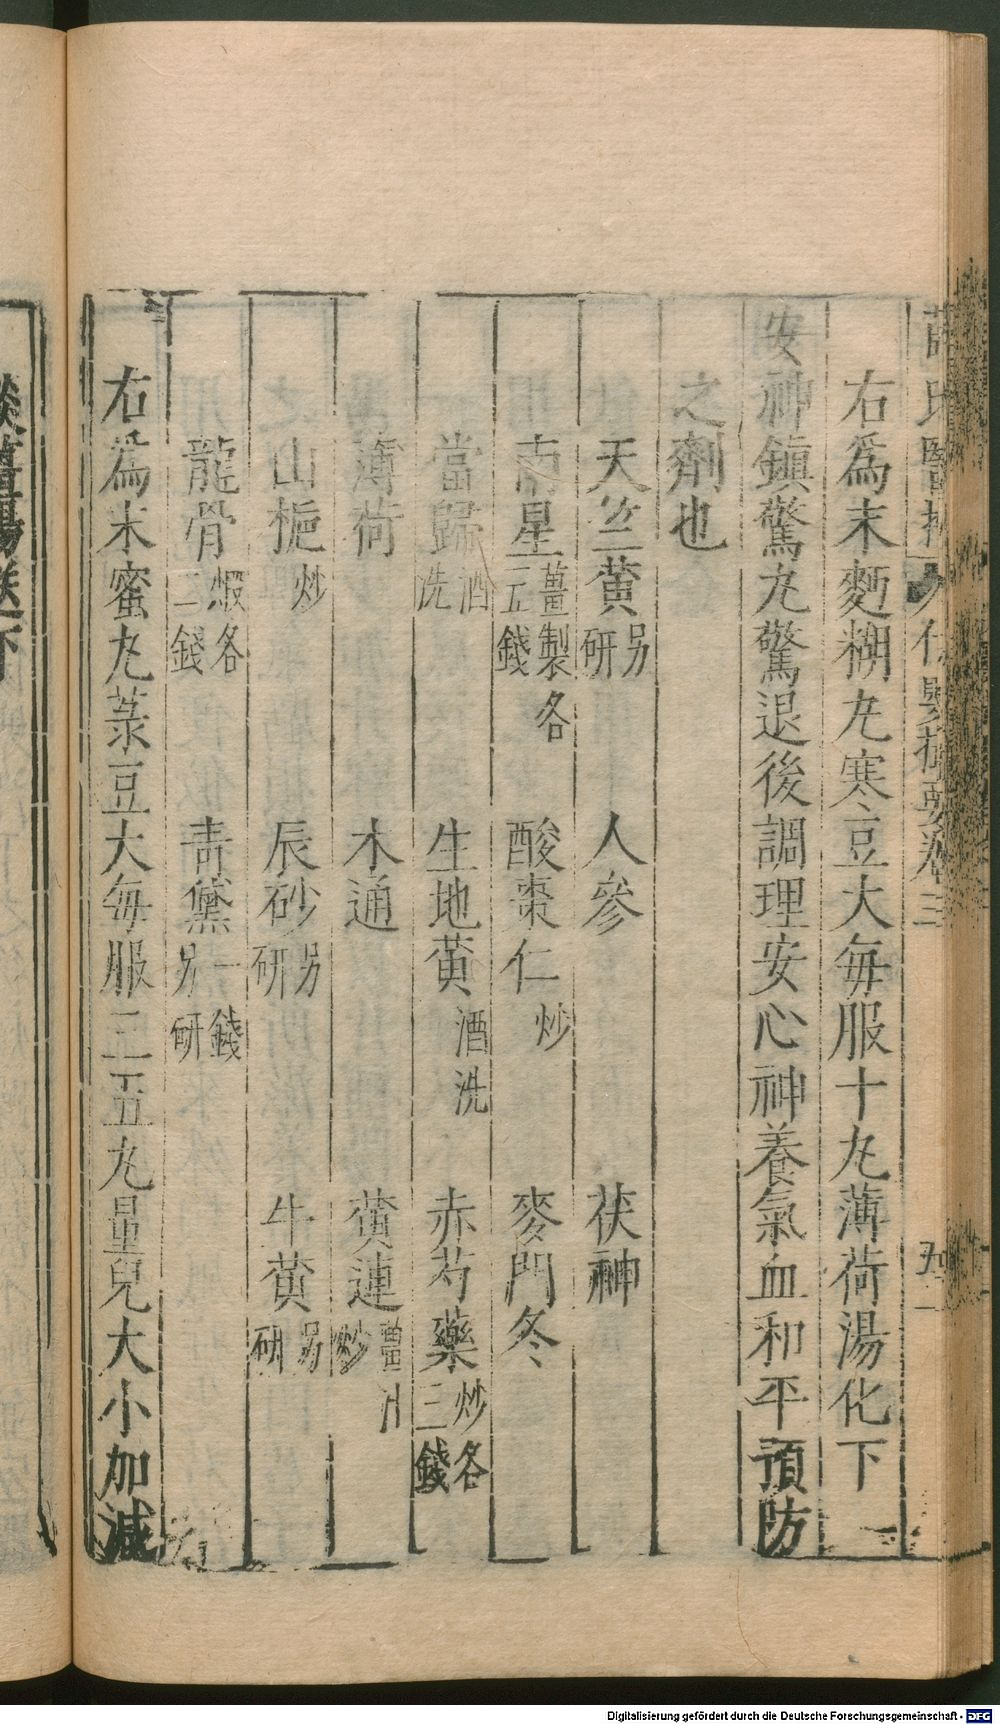 薛氏醫按 保嬰撮要卷三 九二
右爲末麪糊丸寒豆大每服十丸薄荷湯化下
安神鎮驚丸驚退後調理安心神養氣血和平預防
之劑也
天竺黃另研 人參 茯神
南星薑製各五錢 酸棗仁炒 麥門冬
當歸酒洗 生地黃酒洗 赤芍藥炒各三錢
薄荷 木通 黃連薑汁炒
山梔炒 辰砂另研 牛黃另研
龍骨煆各二錢 青黛一錢另研
右爲末蜜丸菉豆大每服三五丸量兒大小加減
淡薑湯送下
Digitalisierung gefördert durch die Deutsche Forschungsgemeinschaft - DFG